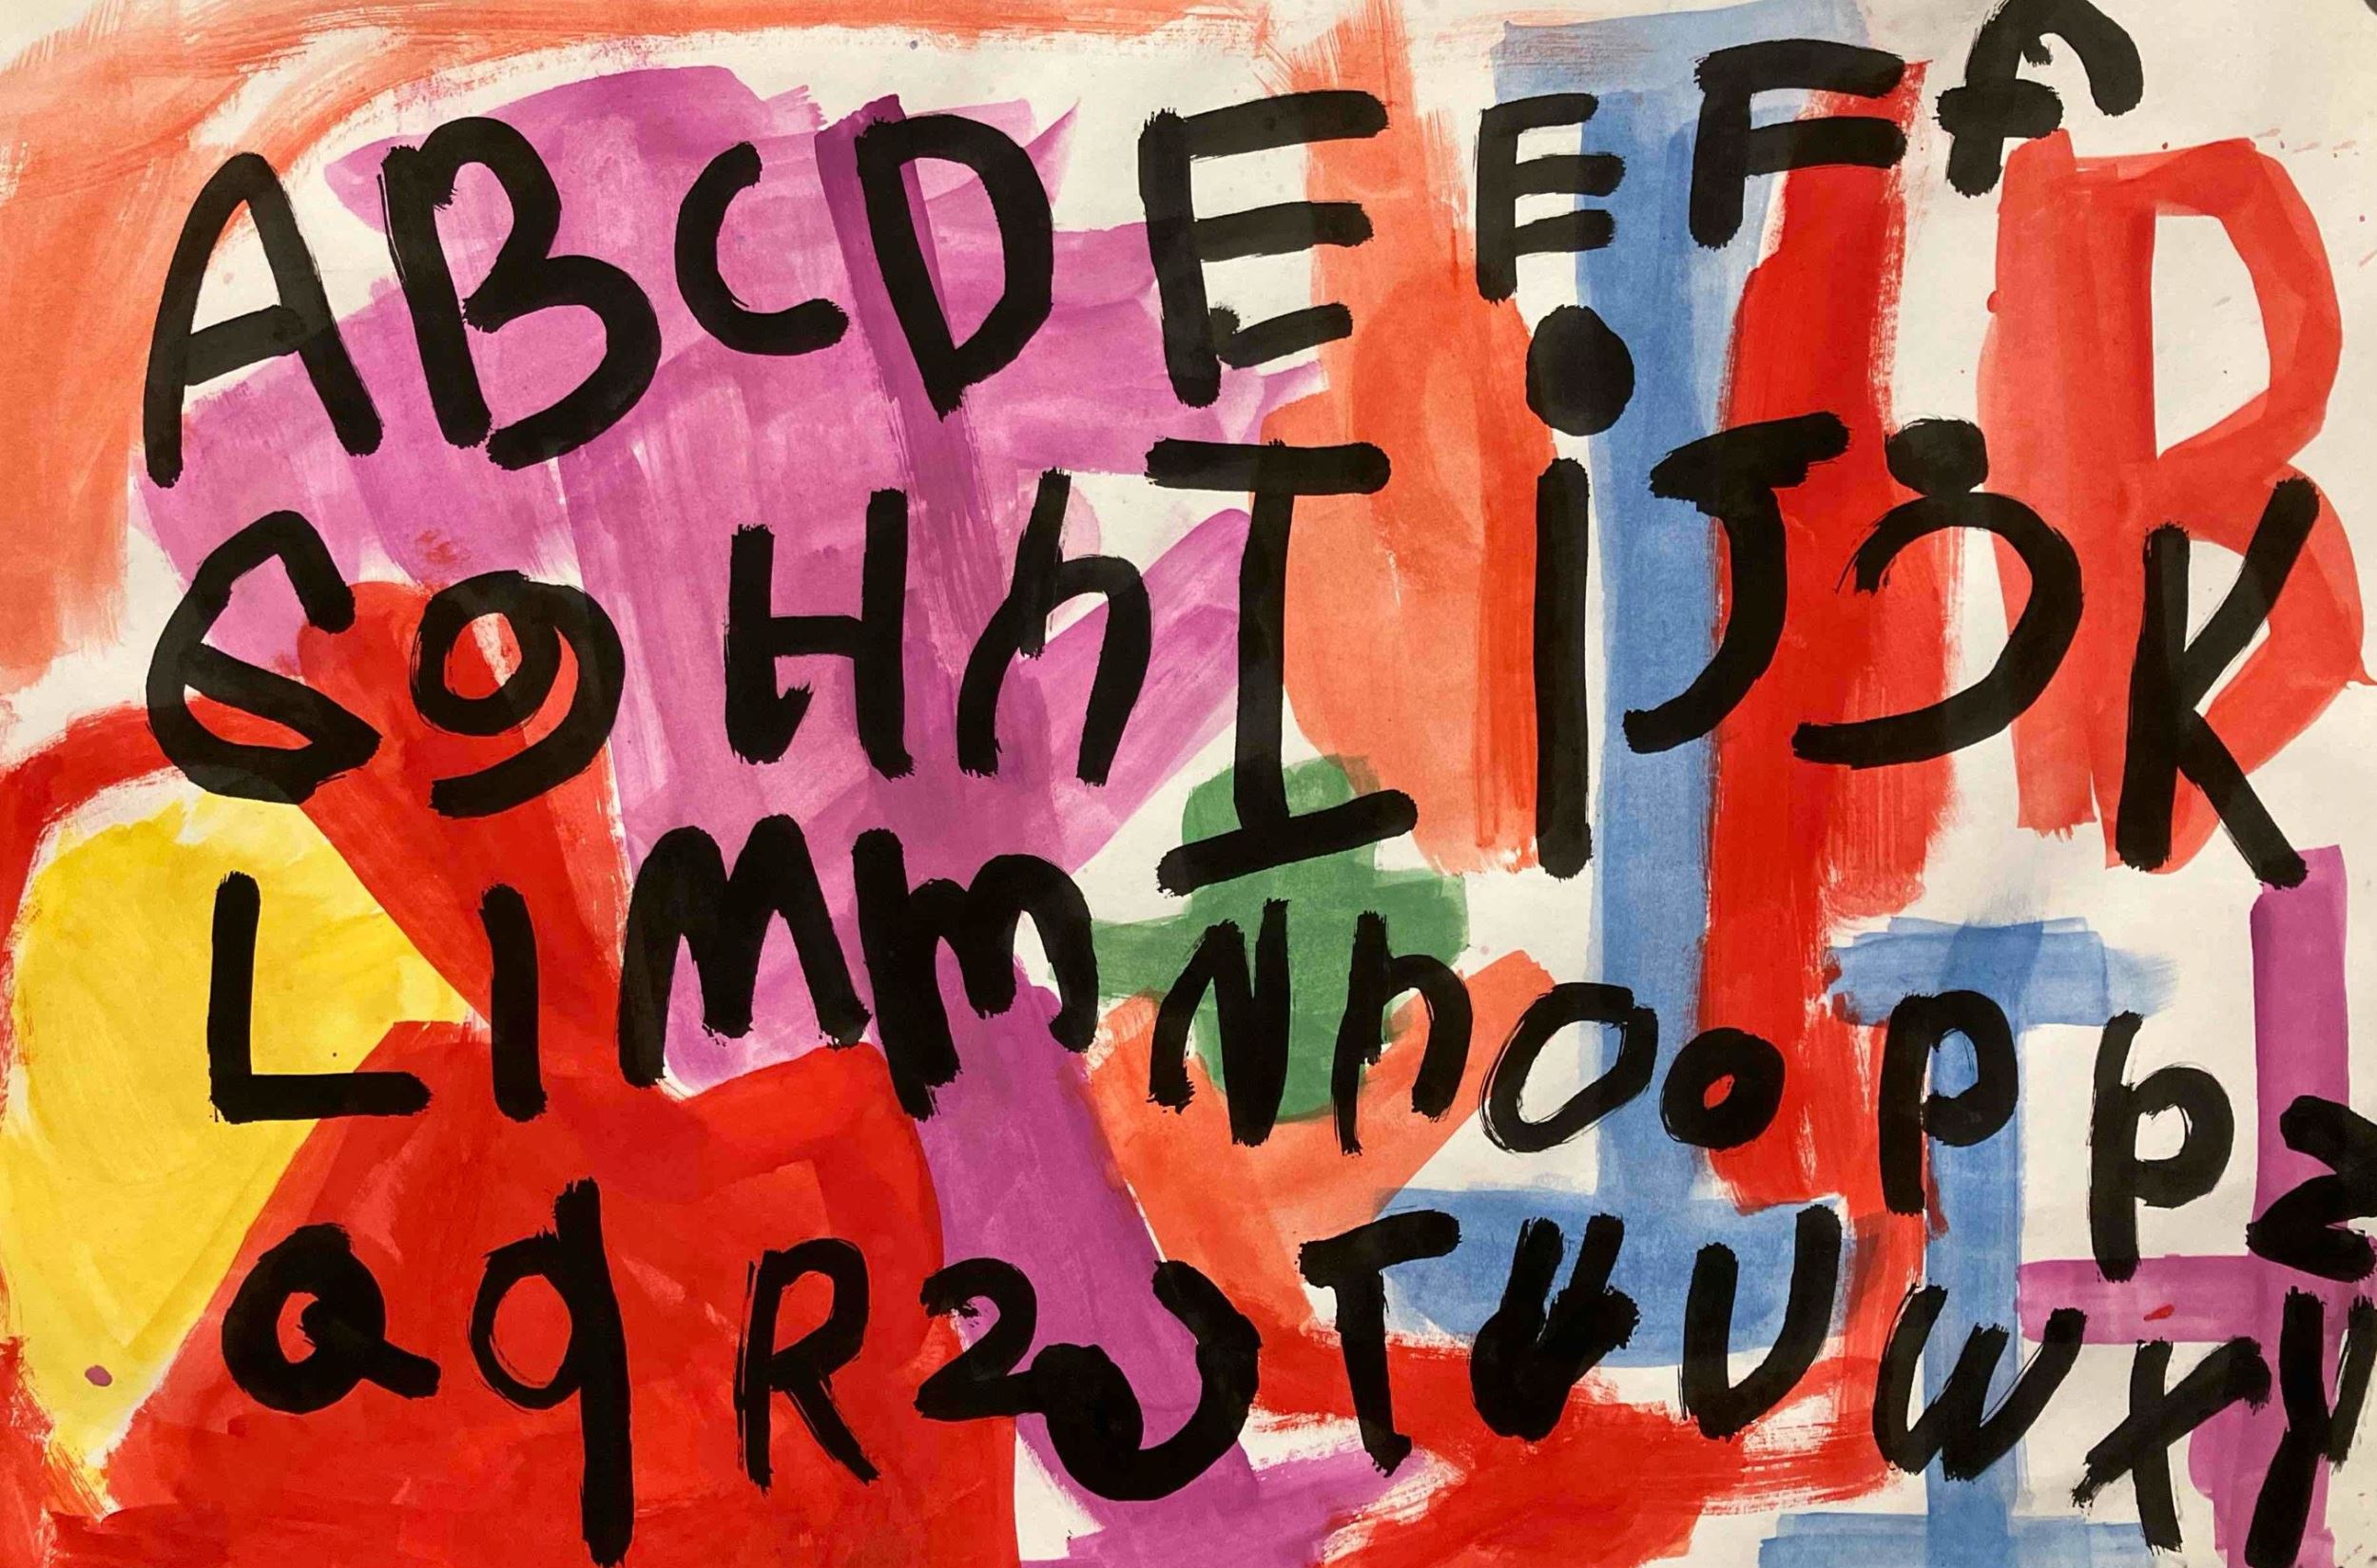 A B C D E E F f
G g H h I i J j K
L l M m N n O o P p z
Q q R T U U W X y